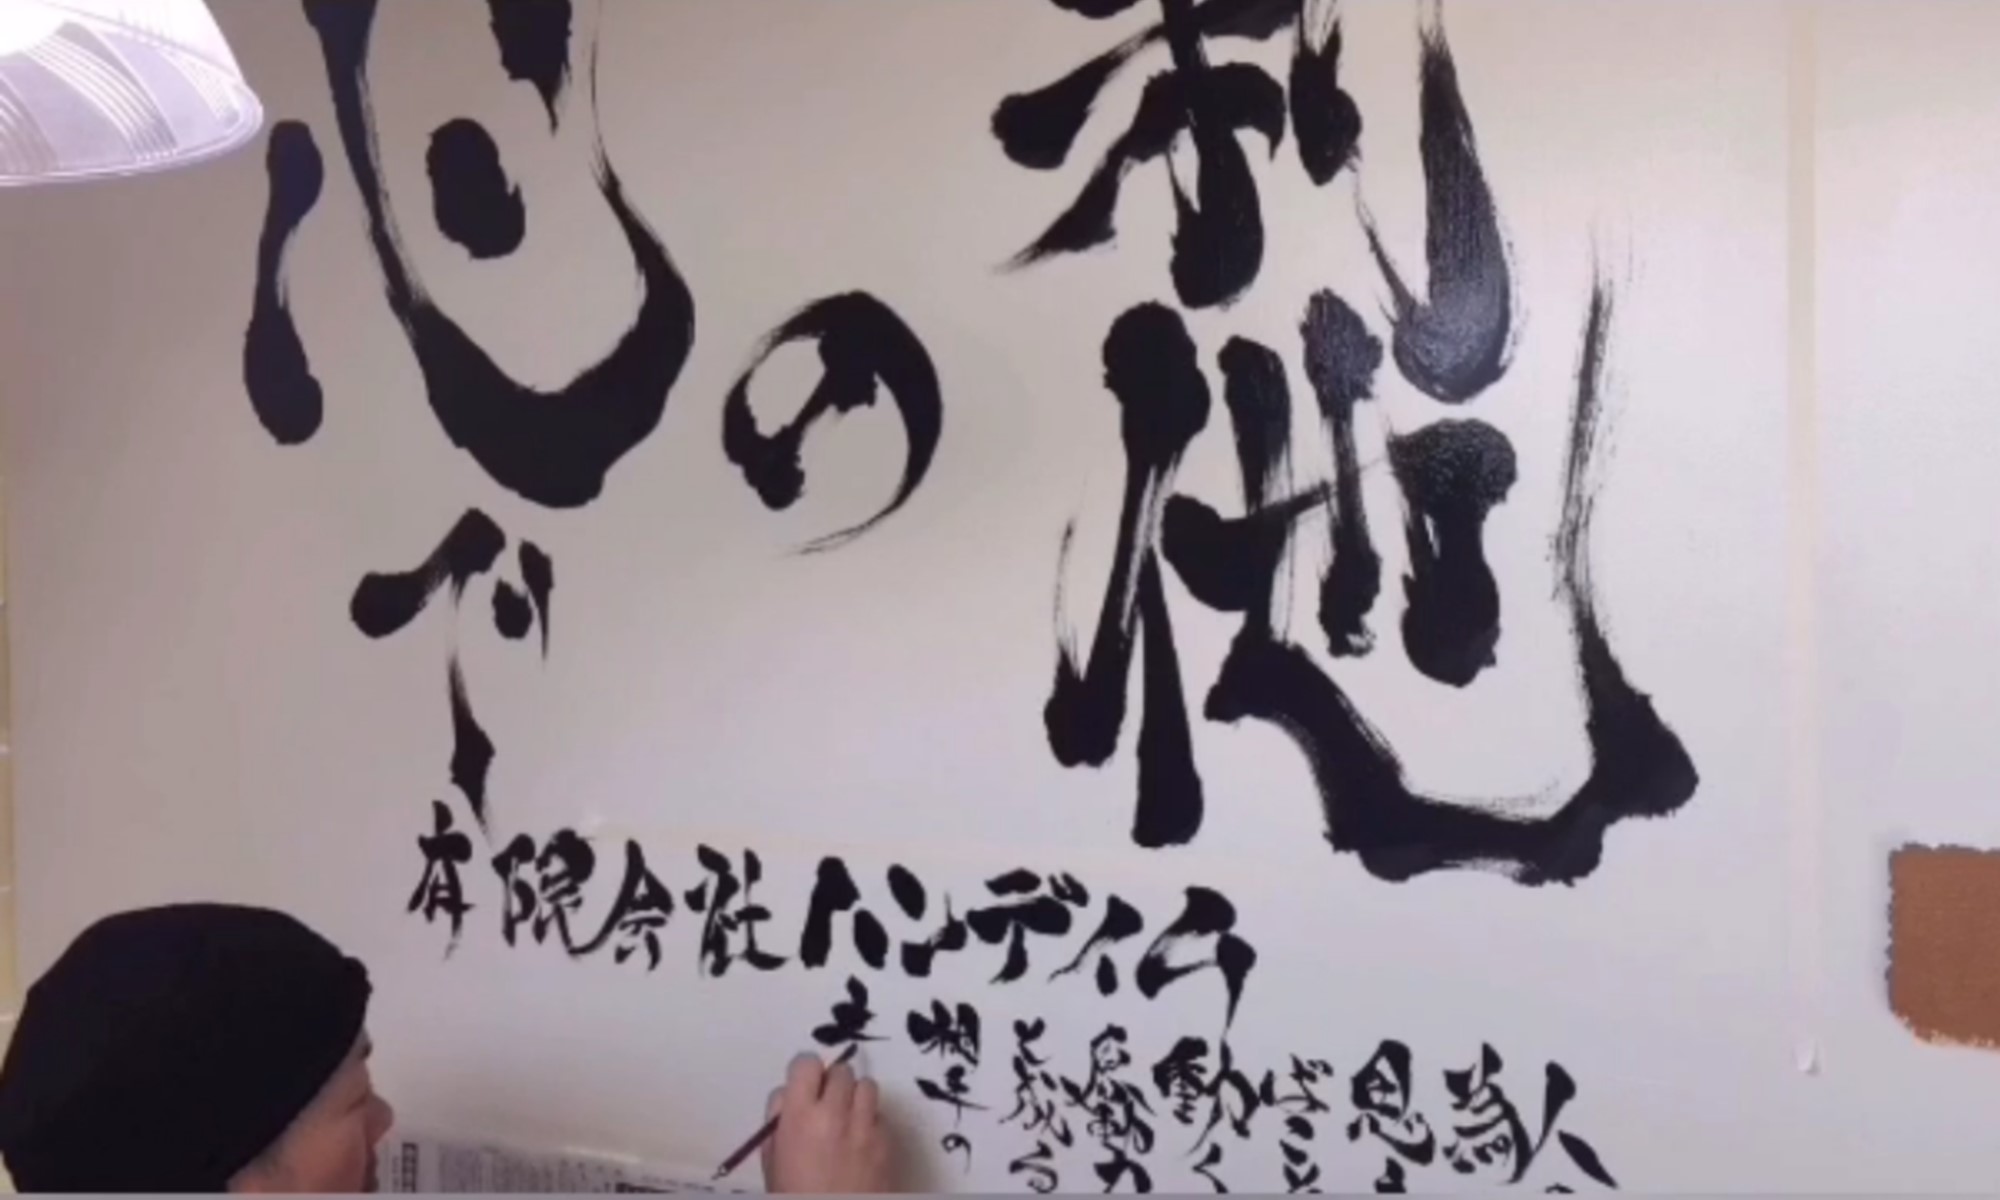 利他
の
心で
有限会社ハンディム
人の
為
思え
ばこそ
動く
原動力
と成る
相手の
立